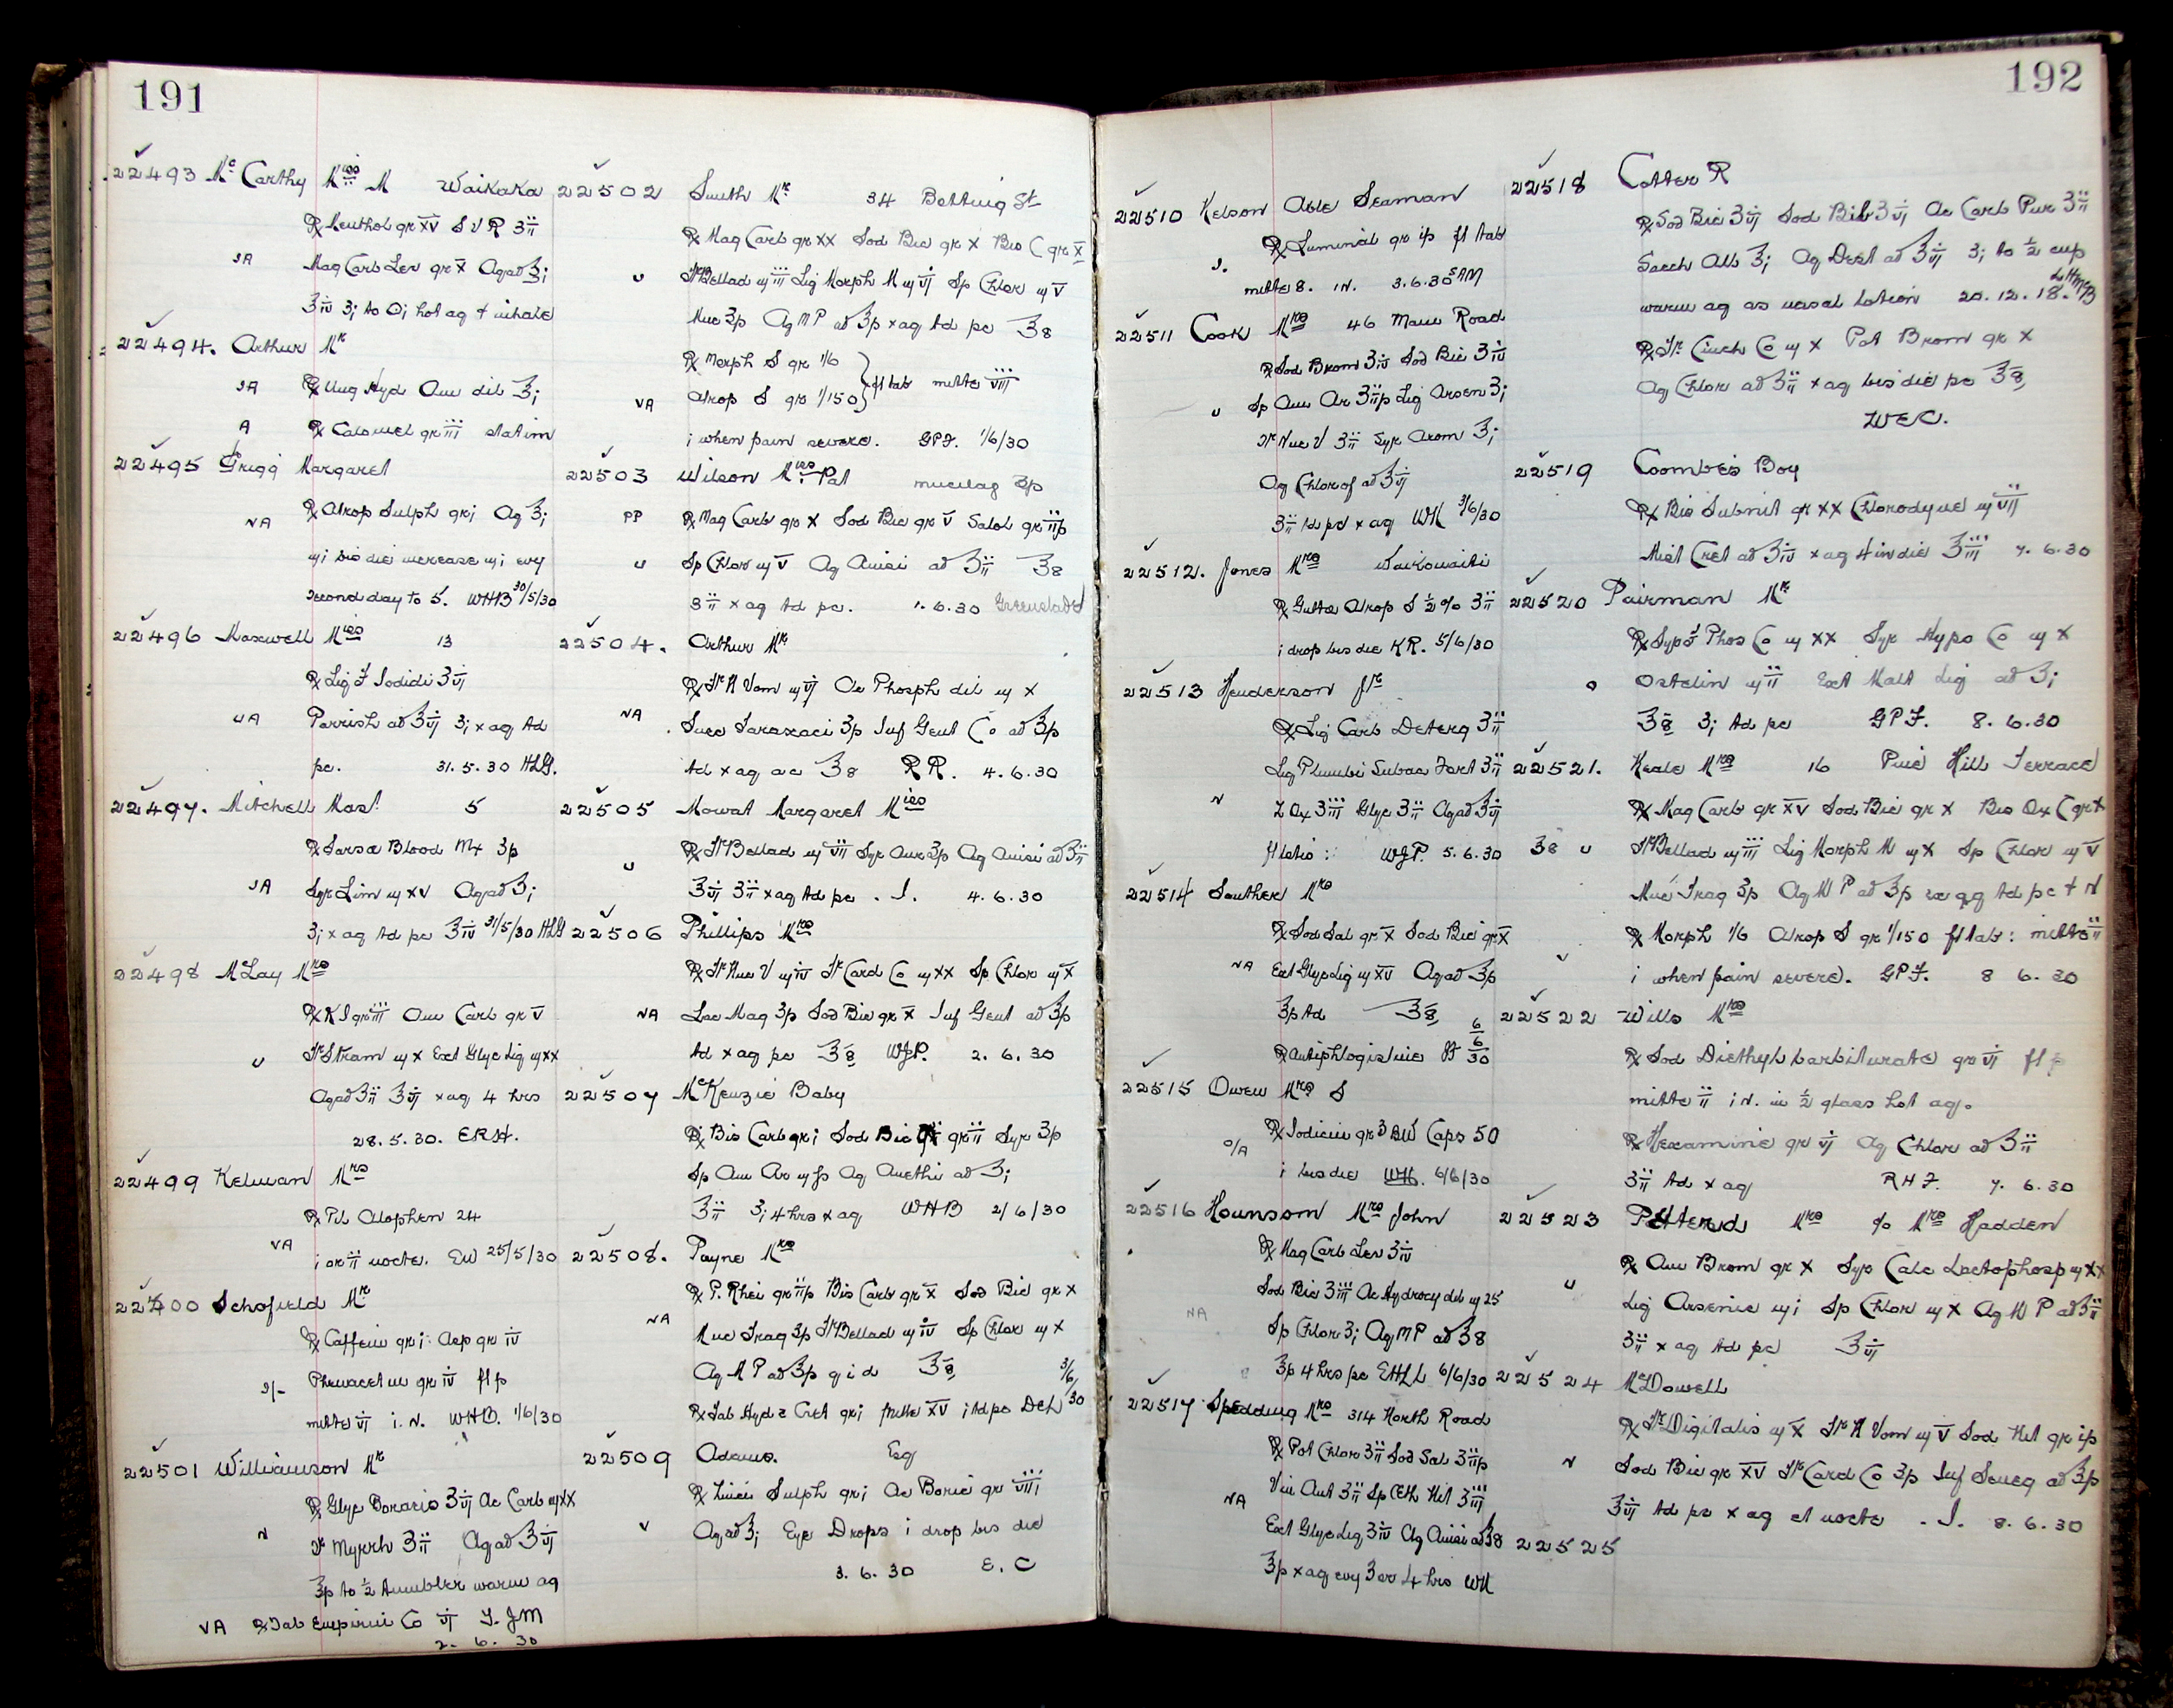 191
22493 Mc Carthy Miss M Waikaka
℞ Menthol gr XV S V R ʒii
Mag Carb Lev gr X Aq ad ℥i
ʒi to Oi hot aq + inhale
22494. Arthur Mr
℞ Ung Hyd Am dil ℥i
℞ Calomel gr iii statim
22495 Grigg Margaret
℞ Atrop Sulph gr i Aq ℥i
mi bis die increase mi evy
second day to 5. WHB 30/5/30
22496 Maxwell Miss 13
℞ Liq F Iodidi ʒvi
Parrish ad ℥vi ʒi x aq td
pc. 31.5.30 HLG.
22497. Mitchell Mast 5
℞ Sarsa Blood Mx ʒp
Syr Lim m xv Aq ad ʒi
ʒi x aq td pc ℥iv 31/5/30 HLG
22498 McLay Mrs
℞ K I gr iii Am Carb gr V
Tr Stram m x Ext Glyc Liq m xx
Aq ad ʒii ℥vi x aq 4 hrs
28.5.30. ERH.
22499 Kelman Mrs
℞ Pil Alophen 24
i or ii nocte. EW 25/5/30
22500 Schofield Mr
℞ Caffein gr i Asp gr iv
Phenacet gr iv ft p
mitte vi i. N. WHB. 1/6/30
22501 Williamson Mr
℞ Glyc Boracis ʒvi Ac Carb m xx
Tr Myrrh ʒii Aq ad ℥vi
℥p to ½ tumbler warm aq
VA ℞ Tab Empirin Co vi T. JM
2. 6. 30
22502 Smith Mr 34 St
℞ Mag Carb gr xx Sod Bic gr x Bis C gr x
Tr Bellad m iii Liq Morph M m vi Sp Chlor m V
Muc ʒp Aq M P ad ℥p x aq td pc ℥8
℞ Morph S gr 1/6
Atrop S gr 1/150 } ft tab mitte viii
i when pain severe. GPF. 1/6/30
22503 Wilson Miss Pat mucilag ʒp
℞ Mag Carb gr x Sod Bic gr v Salol gr iip
Sp Chlor m V Aq Anisi ad ʒii ℥8
ʒii x aq td pc. 1.6.30
22504. Arthur Mr
℞ Tr N Vom m vi Ac Phosph dil m x
Succ Taraxaci ʒp Inf Gent Co ad ℥p
td x aq ac ℥8 RR. 4.6.30
22505 Mowat Margaret Miss
℞ Tr Bellad m vii Syr Aur ʒp Aq Anisi ad ʒii
℥vi ʒii x aq td pc. I. 4.6.30
22506 Phillips Mrs
℞ Tr Nuc V m iv Tr Card Co m xx Sp Chlor m x
Lac Mag ʒp Sod Bic gr x Inf Gent ad ℥p
td x aq pc ℥8 WJP. 2.6.30
22507 McKenzie Baby
℞ Bis Carb gr i Sod Bic gr ii Syr ʒp
Sp Am Ar m p Aq Anethi ad ʒi
℥ii ʒi 4 hrs x aq WHB 2/6/30
22508. Payne Mrs
℞ P. Rhei gr iip Bis Carb gr x Sod Bic gr x
Muc Trag ʒp Tr Bellad m iv Sp Chlor m x
Aq M P ad ℥p q i d ℥8
℞ Tab Hyd c Cret gr i mitte XV i td pc 3/6/30
22509 Adams. Esq
℞ Zinci Sulph gr i Ac Boric gr viii
Aq ad ℥i Eye Drops i drop bis die
3.6.30 E.C
192
22510 Kelson Able Seaman
℞ Luminal gr ip ft tab
mitte 8. i N. 3.6.30
22511 Cook Mrs 46 Road
℞ Sod Brom ʒiv Sod Bic ʒiv
Sp Am Ar ʒiip Liq Arsen ʒi
Tr Nuc V ʒii Syr Arom ℥i
Aq Chlorof ad ℥vi
ʒii td pc x aq WH 3/6/30
22512. Jones Mrs Waikouaiti
℞ Gutta Atrop S ½% ʒii
i drop bis die KR. 5/6/30
22513 Henderson Jr
℞ Liq Carb Deterg ʒii
Liq Plumbi Subac Fort ʒii
Z Ox ʒiii Glyc ʒii Aq ad ℥vi
ft lotio: WJP. 5.6.30
22514 Souther Mrs
℞ Sod Sal gr x Sod Bic gr x
Ext Glyc Liq m xv Aq ad ℥p
℥p td ℥8
℞ Antiphlogistine 6/6/30
22515 Owen Mrs S
℞ Iodicin gr 3 BW Caps 50
i bis die WH. 6/6/30
22516 Hounsom Mrs John
℞ Mag Carb Lev ʒiv
Sod Bic ʒiii Ac Hydrocy dil m 25
Sp Chlor ʒi Aq MP ad ℥8
℥p 4 hrs pc EHLL 6/6/30
22517 Spedding Mrs 314 North Road
℞ Pot Chlor ʒii Sod Sal ʒiip
Vin Ant ʒii Sp Eth Nit ʒiii
Ext Glyc Liq ʒiv Aq Anisi ad ℥8
℥p x aq evy 3 or 4 hrs WH
22518 Cotter R
℞ Sod Bic ʒvi Sod Bib ʒvi Ac Carb Pur ʒii
Sacch Alb ℥i Aq Dest ad ℥vi ʒi to ½ cup
warm aq as nasal lotion 20.12.18.
℞ Tr. Cinch Co m x Pot Brom gr x
Aq Chlor ad ʒii x aq bis die pc ℥8
WEC.
22519 Coombes Boy
℞ Bis Subnit gr xx Chlorodyne m vii
Mist Cret ad ʒiv x aq 4 in die ℥iii 7.6.30
22520 Pairman Mr
℞ Syr Phos Co m xx Syr Hypo Co m x
Ostelin m ii Ext Malt Liq ad ʒi
℥8 ʒi td pc GPF. 8.6.30
22521. Keale Mrs 16 Pine Hill Terrace
℞ Mag Carb gr xv Sod Bic gr x Bis Ox C gr x
Tr Bellad m iii Liq Morph M m x Sp Chlor m V
Muc Trag ʒp Aq M P ad ℥p ex aq td pc + N
℞ Morph 1/6 Atrop S gr 1/150 ft tab: mitte ii
i when pain severe. GPF. 8 6.30
22522 Wills Mrs
℞ Sod Diethyl barbiturate gr vi ft p
mitte ii i N. in ½ glass hot aq.
℞ Hexamine gr vi Aq Chlor ad ʒii
ʒii td x aq RHF. 7.6.30
22523 Mrs c/o Mrs Hadden
℞ Am Brom gr x Syr Calc Lactophosp m xx
Liq Arsenic m i Sp Chlor m x Aq M P ad ʒii
ʒii x aq td pc ℥vi
22524 McDowell
℞ Tr Digitalis m x Tr N Vom m V Sod Nit gr ip
Sod Bic gr XV Tr Card Co ʒp Inf Seneg ad ℥p
℥vi td pc x aq et nocte. I. 8.6.30
22525